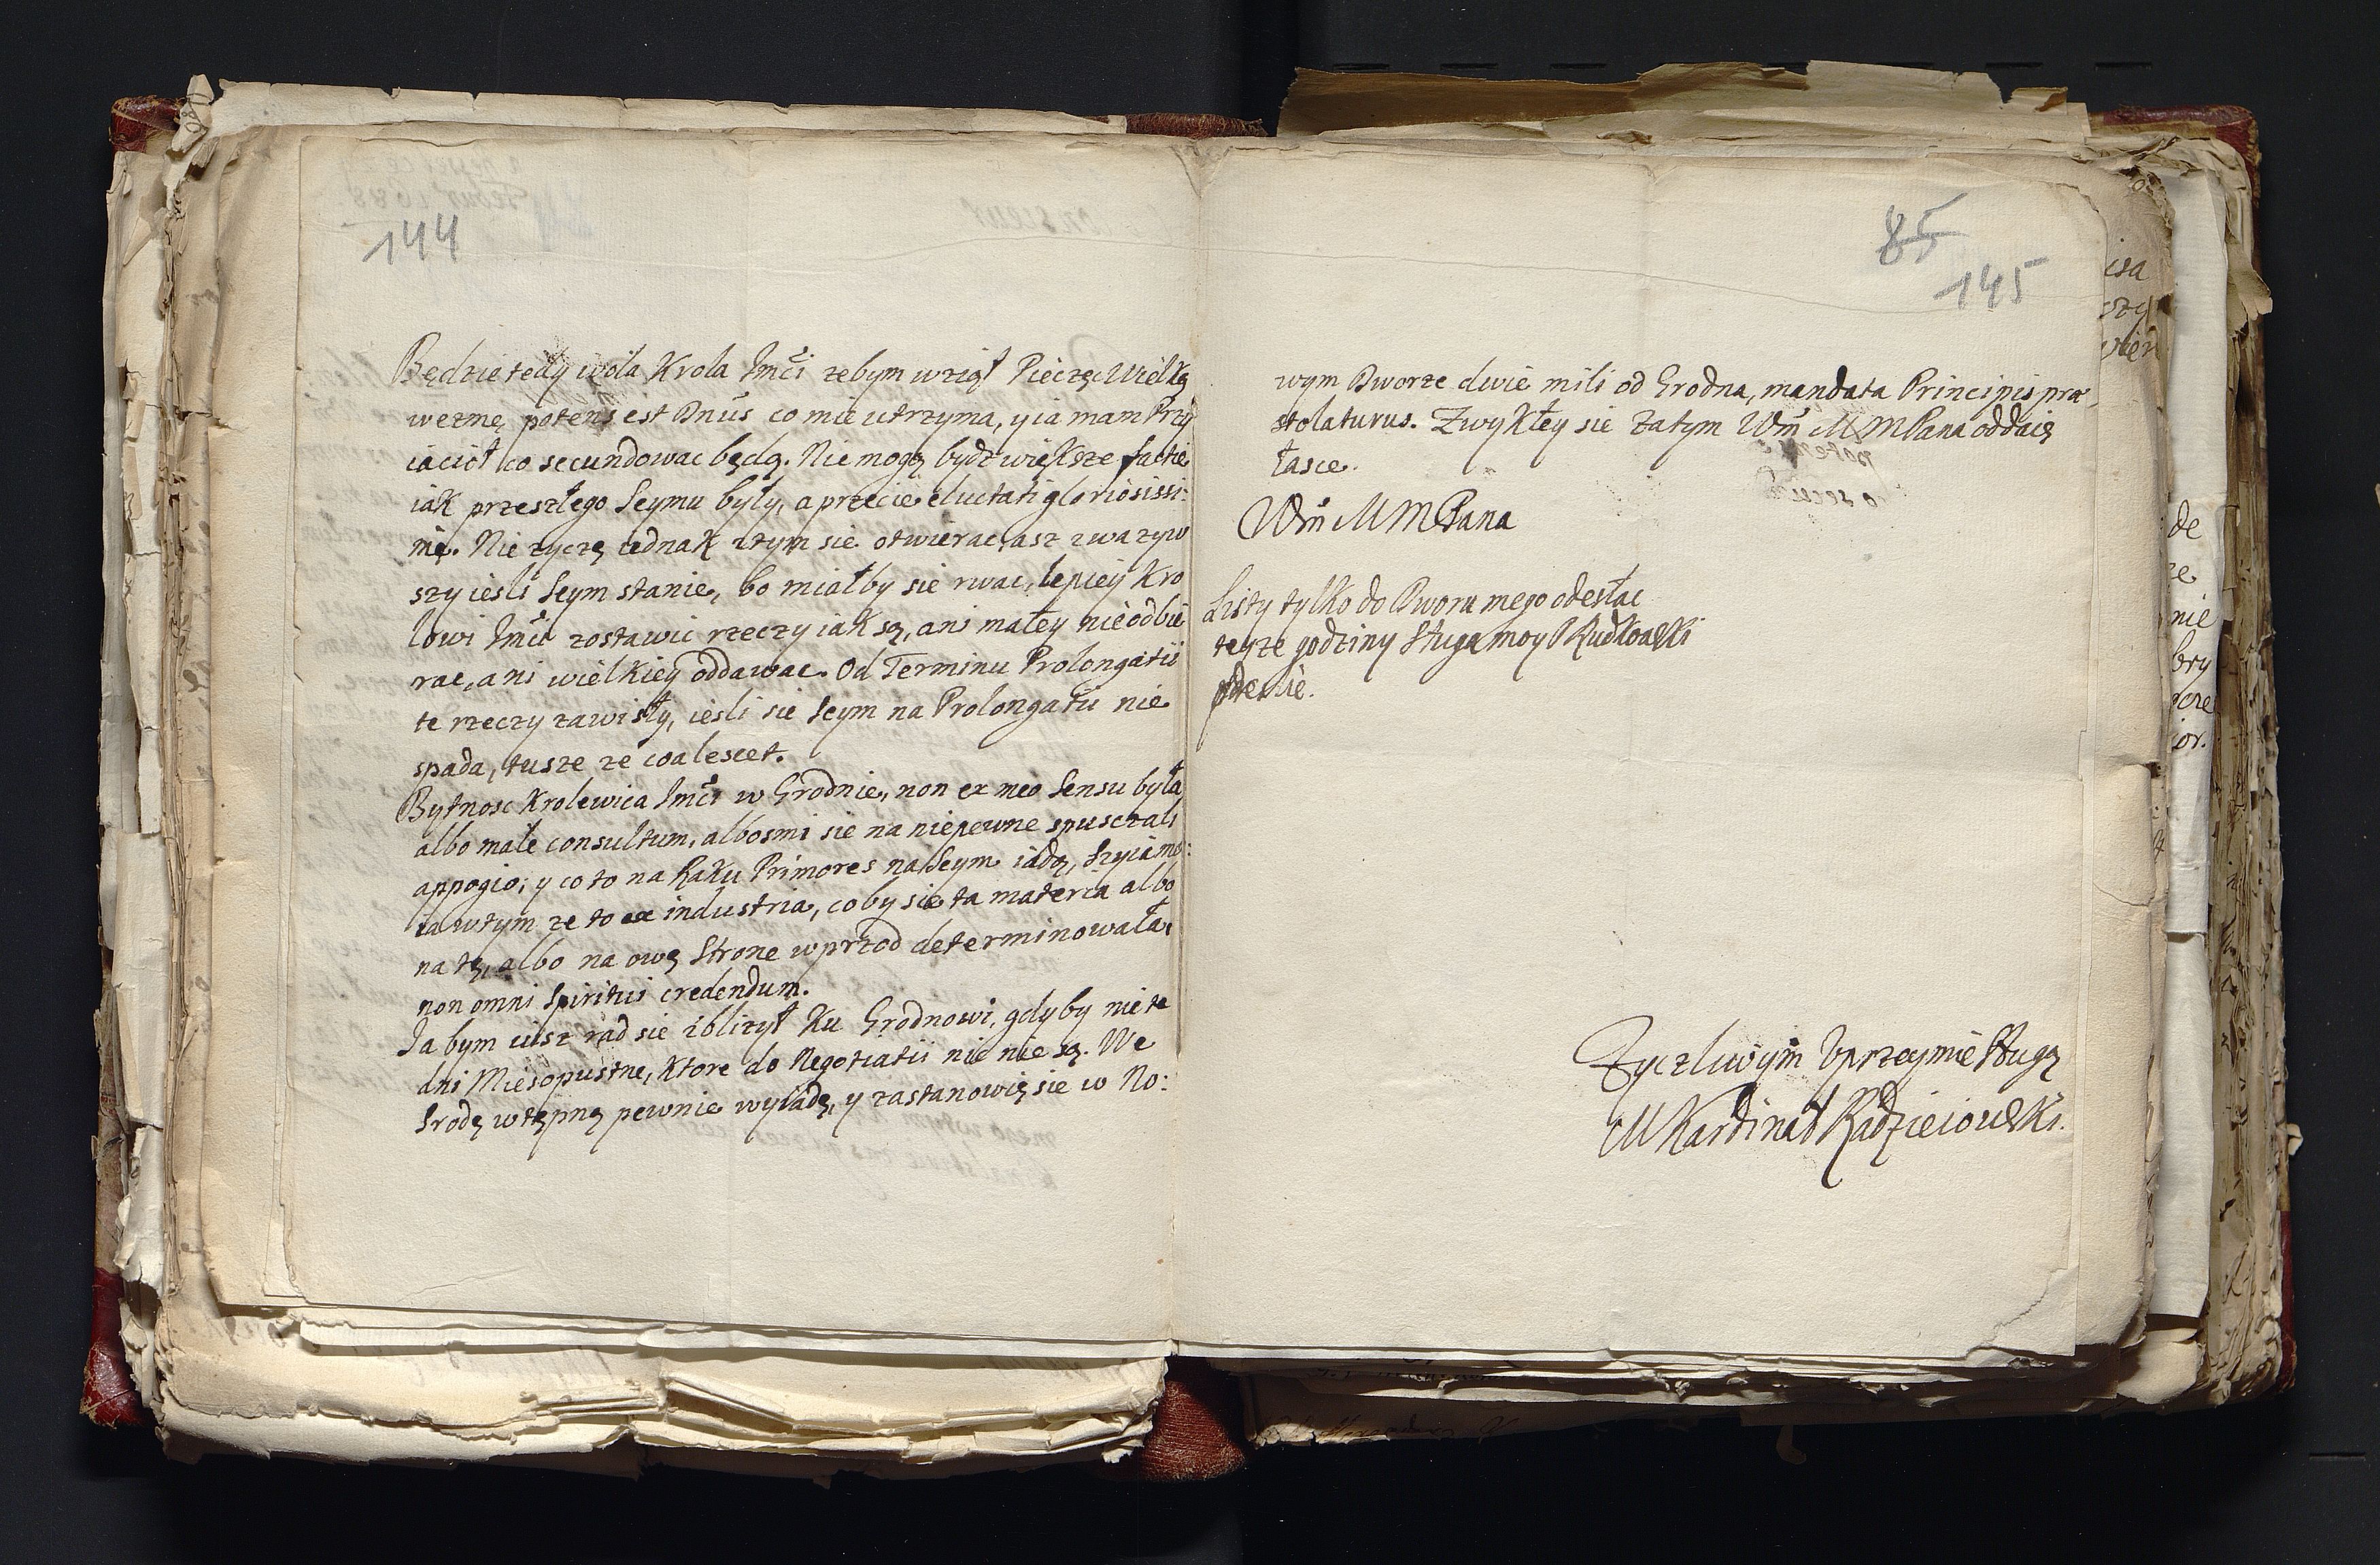 144
Będzie tedy wola Krola Jmći zebym wziął Pieczęć Wielką
wezmę, potens est Dnūs co mie utrzyma, y ia mam Przy
iaciół co secundowac będą. Nie mogą bydz większe factie
iak przeszłego Seymu były, a przecie eluctati gloriosissi:
mę. Nie zyczę iednak z tym sie otwierac, asz zwazyw
szy iesli Seym stanie, bo miałby sie rwac, lepiey Kro
lowi Jmći zostawic rzeczy iak są, ani małey nieodbie
rac, ani wielkiey oddawac. Od Terminu Prolongatii
te rzeczy zawisły, iesli sie Seym na Prolongatii nie
spada, tusze ze coalescet.
Bytnosc Krolewica Jmći w Grodnie, non ex meo Sensu była,
albo male consultum, albosmi sie na niepewne spusczali
appogio; y co to na Raku Primores na Seym iadą, Szyia mo:
ia w tym ze to ex industria, coby sie ta materia albo
na tę, albo na owę Strone wprzod determinowała,
non omni Spiritui credendum.
Ia bym uisz rad sie zblizył Ku Grodnowi, gdyby nie te
dni Miesopustne, Ktore do Negotiatii nic nie są. We
Srodę wtępną pewnie wyiadę, y zastanowię sie w No:
85
145
wym Dworze dwie mili od Grodna, mandata Principis præ
stolaturus. Zwykłey sie Zatym Wm̄ M MPana oddaię
łasce.
Wm̄ M MPana
Listy tylko do Dworu mego odesłac
teyze godziny Sługa moy Rudkowski
odeszle.
Zyczliwym Vprzeymie Sługą
M Kardinał Radzieiowski.